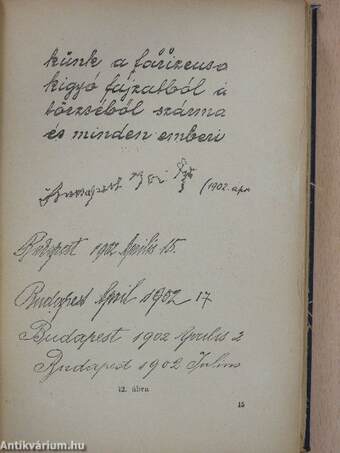 künk a fárizeusa
kigyó fajzatból á
törzséből szárma
és minden emberi
Budapest 1902 (1902. apr
Budapest 1902 Április 15.
Budapest April 1902 17
Budapest 1902 Április 2
Budapest 1902 Julius
12. ábra
15
Antikvárium.hu